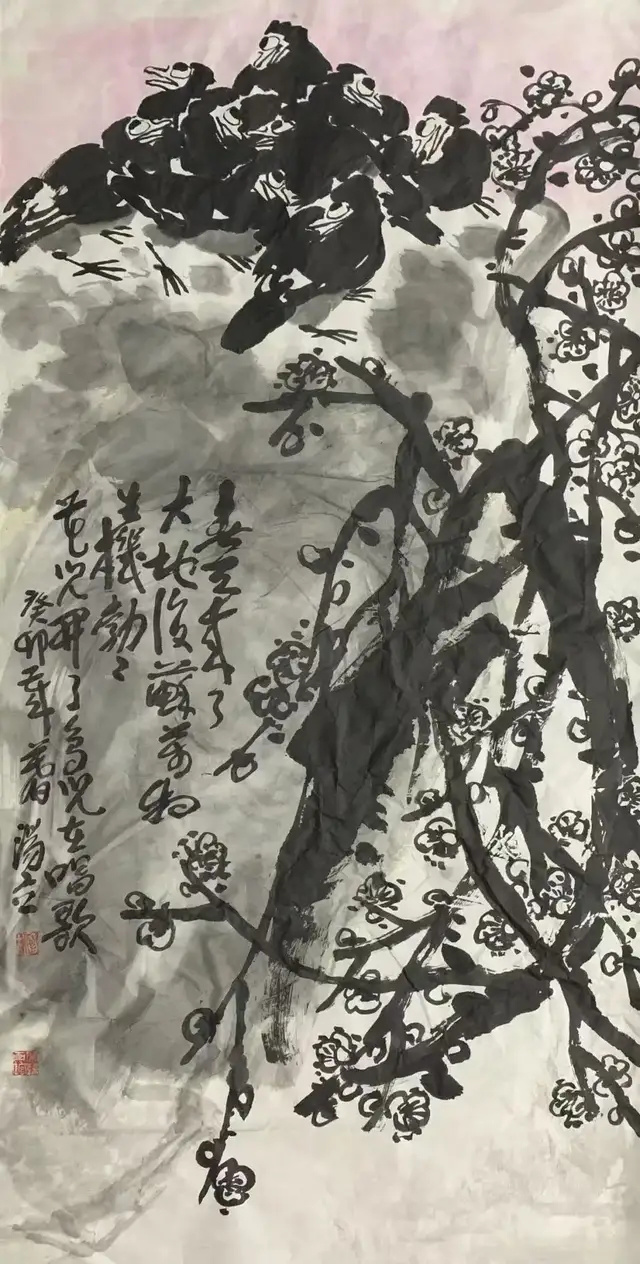 春天来了
大地復蘇萬物
生機勃々
花兒開了鳥兒在唱歌
癸卯年 湯立